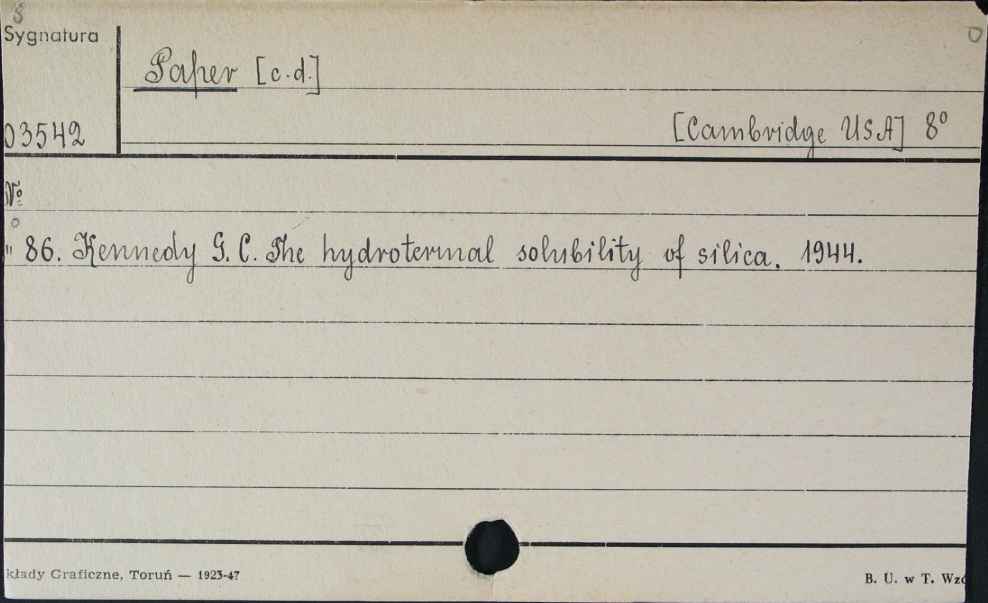 8
Sygnatura
Paper [c.d.]
03542
[Cambridge USA] 8°
№
" 86. Kennedy G. C. The hydrotermal solubility of silica. 1944.
kłady Graficzne, Toruń — 1923-47
B. U. w T. Wzó